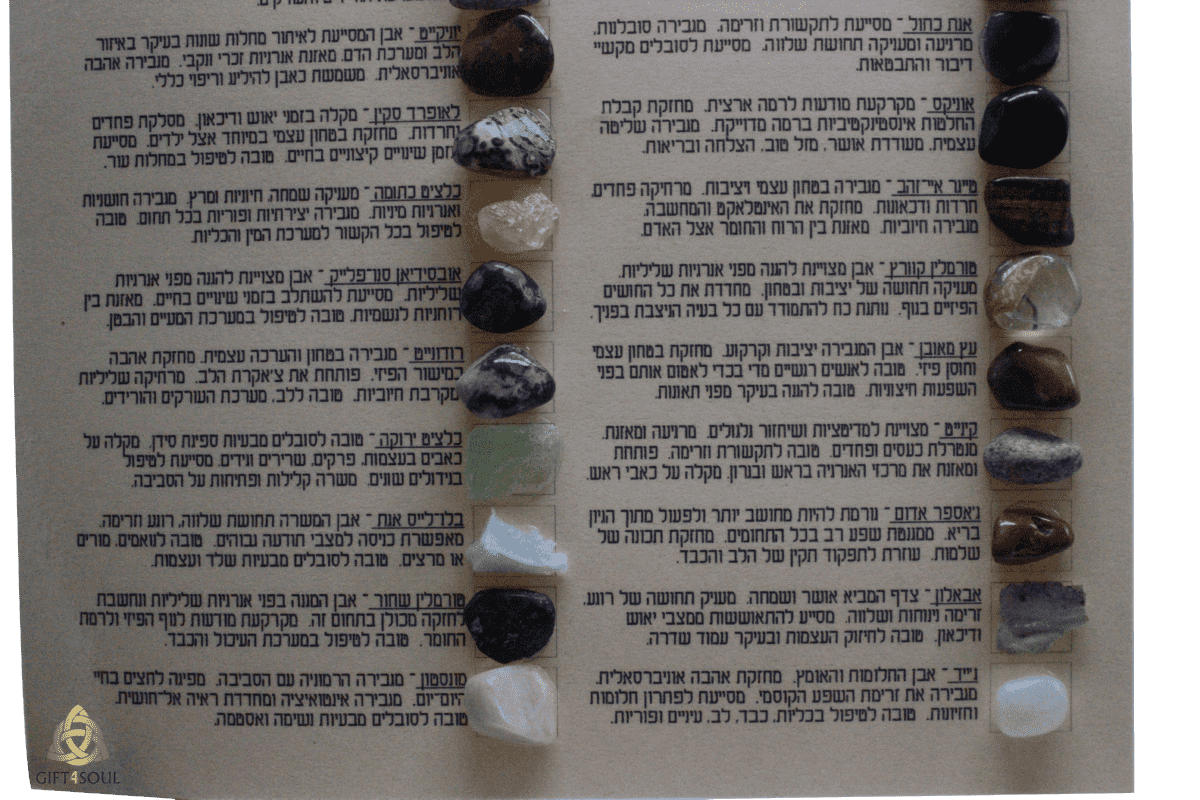 אגת כחול - מסייעת לתקשורת וזרימה. מגבירה סובלנות,
מרגיעה ומעניקה תחושת שלווה. מסייעת לסובלים מקשיי
דיבור והתבטאות.
אוניקס - מקרקעת מודעות לרמה ארצית. מחזקת קבלת
החלטות אינסטינקטיביות ברמה מדוייקת. מגבירה שליטה
עצמית. מעודדת אושר, מזל טוב, הצלחה ובריאות.
טייגר איי-זהב - מגבירה בטחון עצמי ויציבות. מרחיקה פחדים,
חרדות ודכאונות. מחזקת את האינטלאקט והמחשבה,
מגבירה חיוביות. מאזנת בין הרוח והחומר אצל האדם.
טורמלין קוורץ - אבן מצויינת להגנה מפני אנרגיות שליליות.
מעניקה תחושה של יציבות ובטחון. מחדדת את כל החושים
הפיזיים בגוף. נותנת כח להתמודד עם כל בעיה הניצבת בפניך.
עץ מאובן - אבן המגבירה יציבות וקרקוע. מחזקת בטחון עצמי
וחוסן פיזי. טובה לאנשים רגשיים מדי בכדי לאטום אותם בפני
השפעות חיצוניות. טובה להגנה בעיקר מפני תאונות.
קינייט - מצויינת למדיטציות ושיחזור גלגולים. מרגיעה ומאזנת.
מנטרלת כעסים ופחדים. טובה לתקשורת וזרימה. פותחת
ומאזנת את מרכזי האנרגיה בראש ובגרון. מקלה על כאבי ראש.
ג'אספר אדום - גורמת להיות מחושב יותר ולפעול מתוך הגיון
בריא. ממגנטת שפע רב בכל התחומים. מחזקת תכונה של
שלמות. עוזרת לתפקוד תקין של הלב והכבד.
אבאלון - צדף המביא אושר ושמחה. מעניק תחושה של רוגע,
זרימה נינוחות ושלווה. מסייע להתאוששות ממצבי יאוש
ודיכאון. טובה לחיזוק העצמות ובעיקר עמוד שדרה.
ג'ייד - אבן החלומות והאומץ. מחזקת אהבה אוניברסאלית.
מגבירה את זרימת השפע הקוסמי. מסייעת לפתרון חלומות
וחזיונות. טובה לטיפול בכליות, כבד, לב, עיניים ופוריות.
יוניקייט - אבן המסייעת לאיתור מחלות שונות בעיקר באיזור
הלב ומערכת הדם. מאזנת אנרגיות זכרי ונקבי. מגבירה אהבה
אוניברסאלית. משמשת כאבן להילינג וריפוי כללי.
לאופרד סקין - מקלה בזמני יאוש ודיכאון. מסלקת פחדים
וחרדות. מחזקת בטחון עצמי במיוחד אצל ילדים. מסייעת
בזמן שינויים קיצוניים בחיים. טובה לטיפול במחלות עור.
כלציט כתומה - מעניקה שמחה, חיוניות ומרץ. מגבירה חושניות
ואנרגיות מיניות. מגבירה יצירתיות ופוריות בכל תחום. טובה
לטיפול בכל הקשור למערכת המין והכליות.
אובסידיאן סנו-פלייק - אבן מצויינת להגנה מפני אנרגיות
שליליות. מסייעת להשתלב בזמני שינויים בחיים. מאזנת בין
רוחניות לגשמיות. טובה לטיפול במערכת המעיים והבטן.
רודונייט - מגבירה בטחון והערכה עצמית. מחזקת אהבה
במישור הפיזי. פותחת את צ'אקרת הלב. מרחיקה שליליות
מקרבת חיוביות. טובה ללב, מערכת העורקים והורידים.
כלציט ירוקה - טובה לסובלים מבעיות ספיגת סידן. מקלה על
כאבים בעצמות, פרקים, שרירים וגידים. מסייעת לטיפול
בגידולים שונים. משרה קלילות ופתיחות על הסביבה.
בלו-לייס אגת - אבן המשרה תחושת שלווה, רוגע וזרימה.
מאפשרת כניסה למצבי תודעה גבוהים. טובה לנואמים, מורים
או מרצים. טובה לסובלים מבעיות שלד ועצמות.
טורמלין שחור - אבן המגנה בפני אנרגיות שליליות ונחשבת
לחזקה מכולן בתחום זה. מקרקעת מודעות לגוף הפיזי ולרמת
החומר. טובה לטיפול במערכת העיכול והכבד.
מונסטון - מגבירה הרמוניה עם הסביבה. מפיגה לחצים בחיי
היום-יום. מגבירה אינטואיציה ומחדדת ראיה אל-חושית.
טובה לסובלים מבעיות נשימה ואסטמה.
GIFT4SOUL